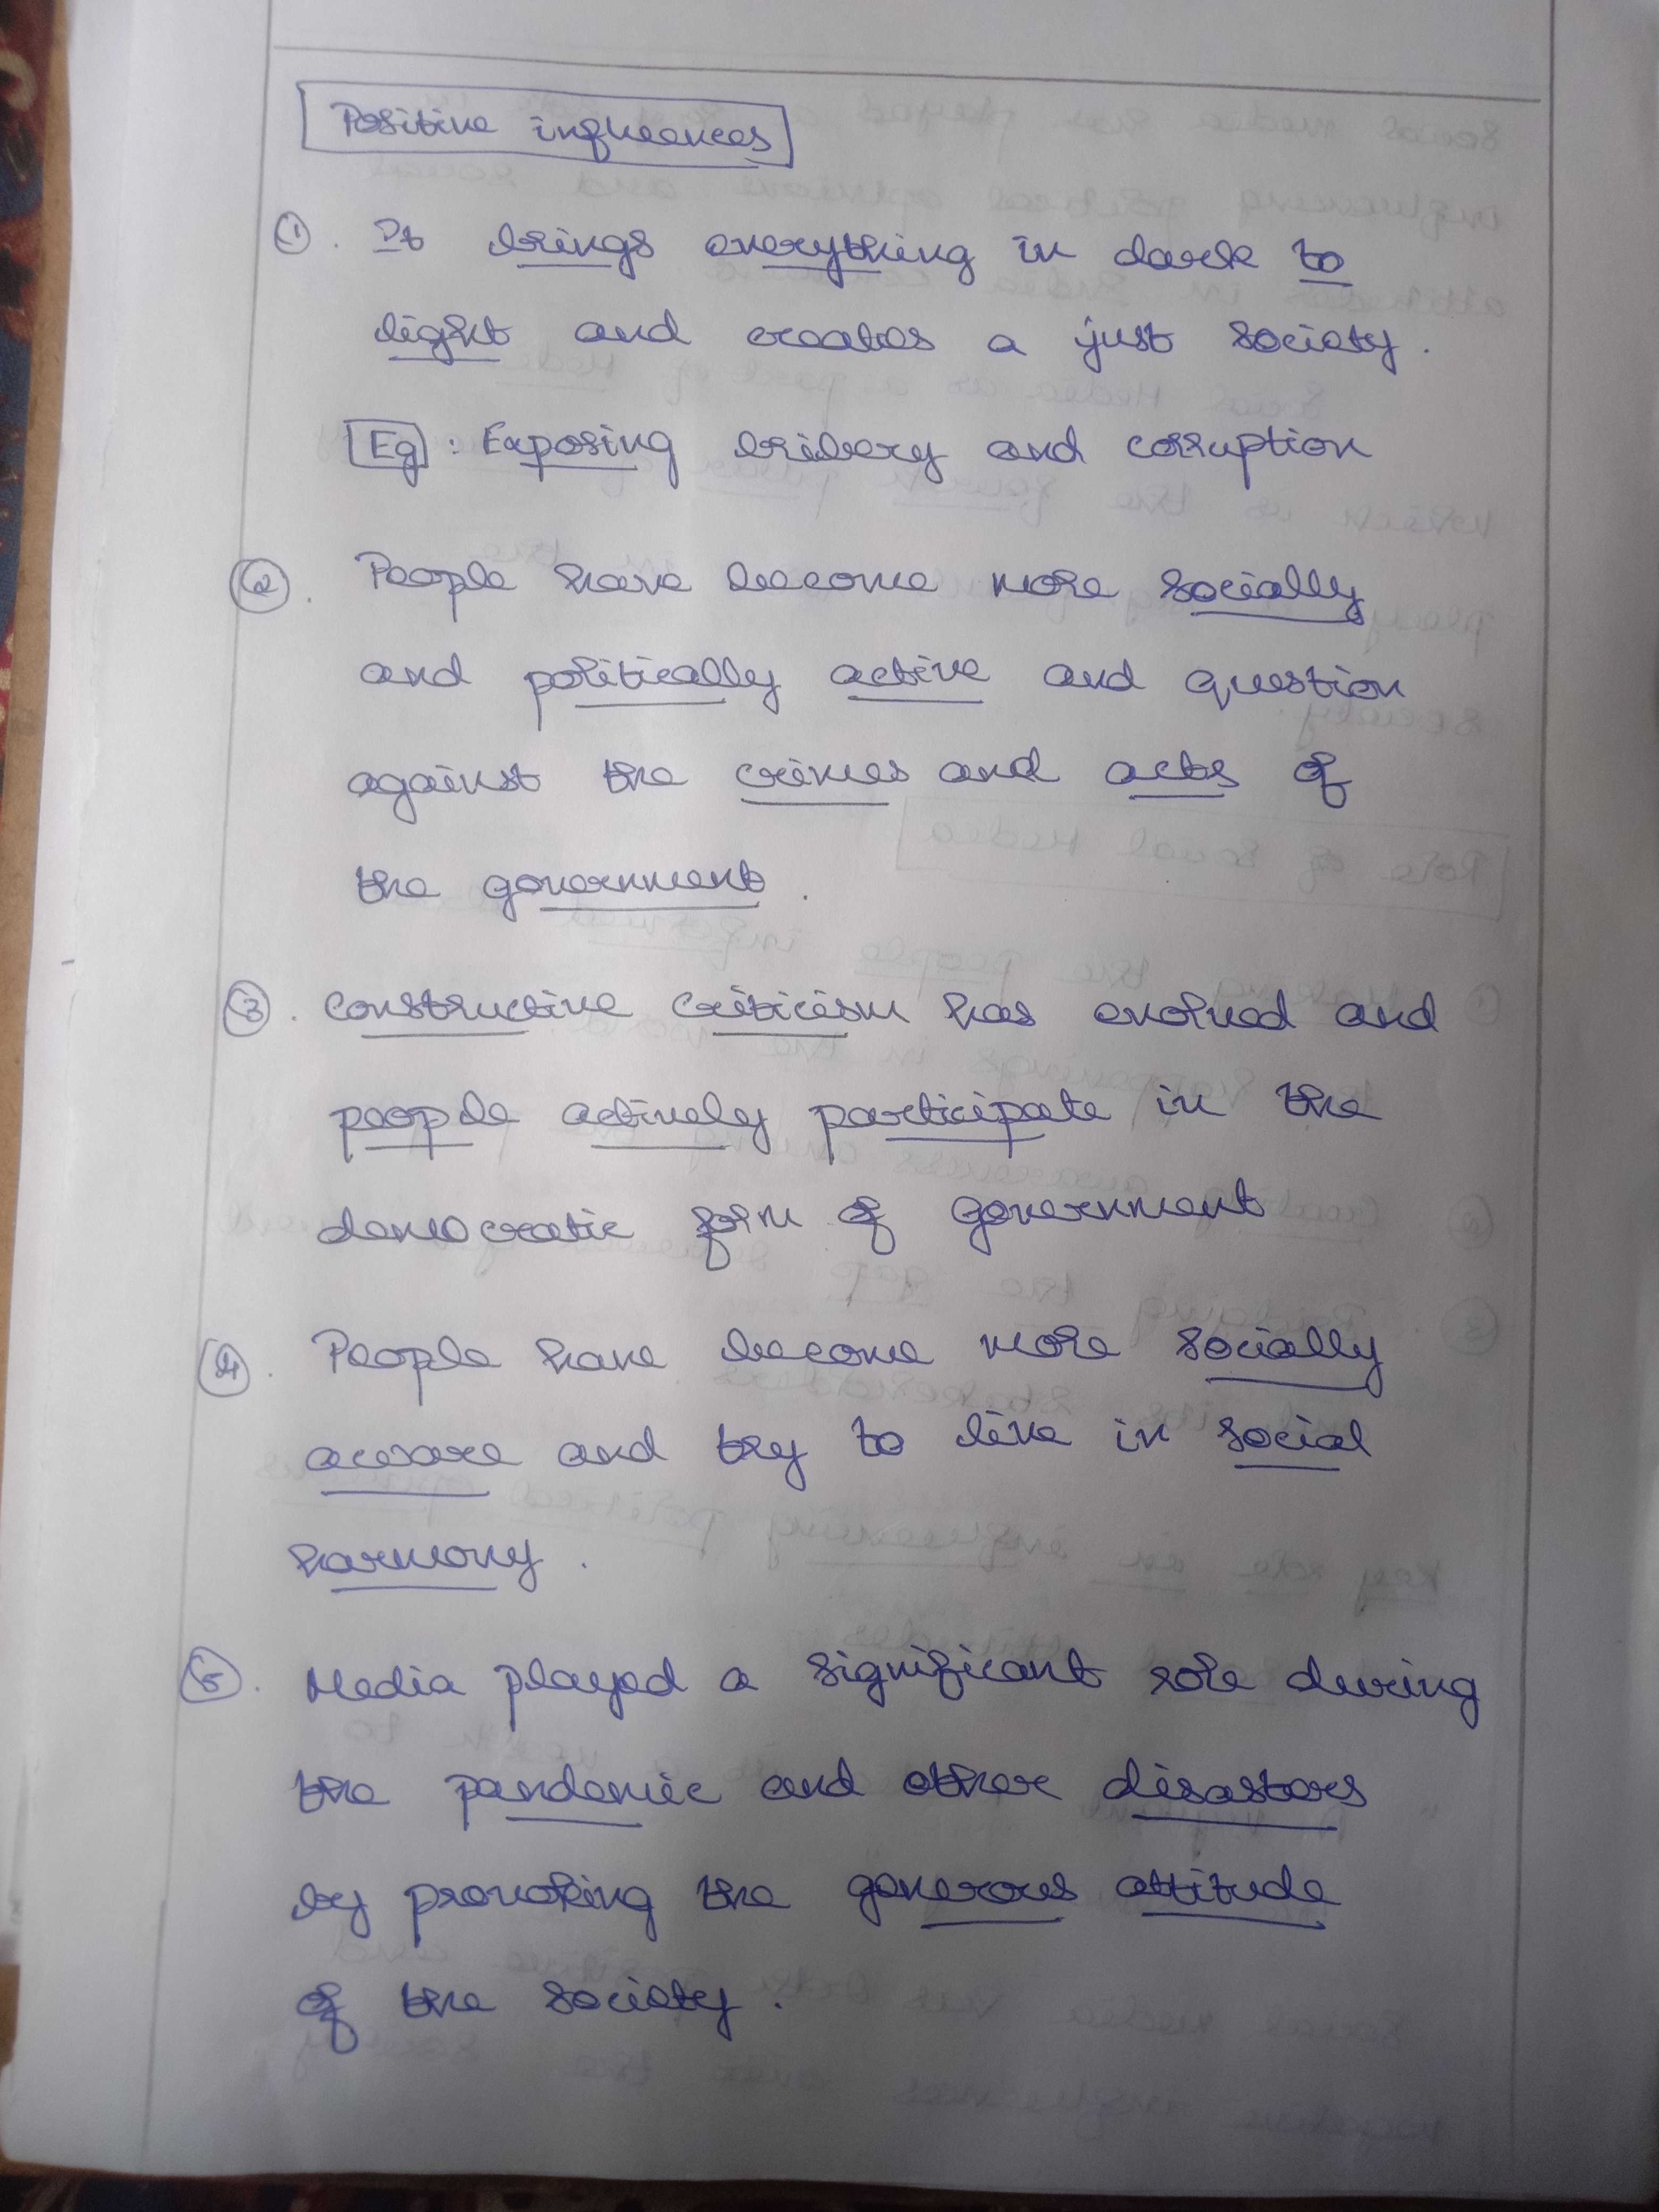 Positive influences
1. It brings everything in dark to
light and creates a just society.
Eg: Exposing bribery and corruption
2. People have become more socially
and politically active and question
against the crimes and acts of
the government.
3. Constructive criticism has evolved and
people actively participate in the
democratic form of government
4. People have become more socially
aware and try to live in social
harmony.
5. Media played a significant role during
the pandemic and other disasters
by provoking the generous attitude
of the society.